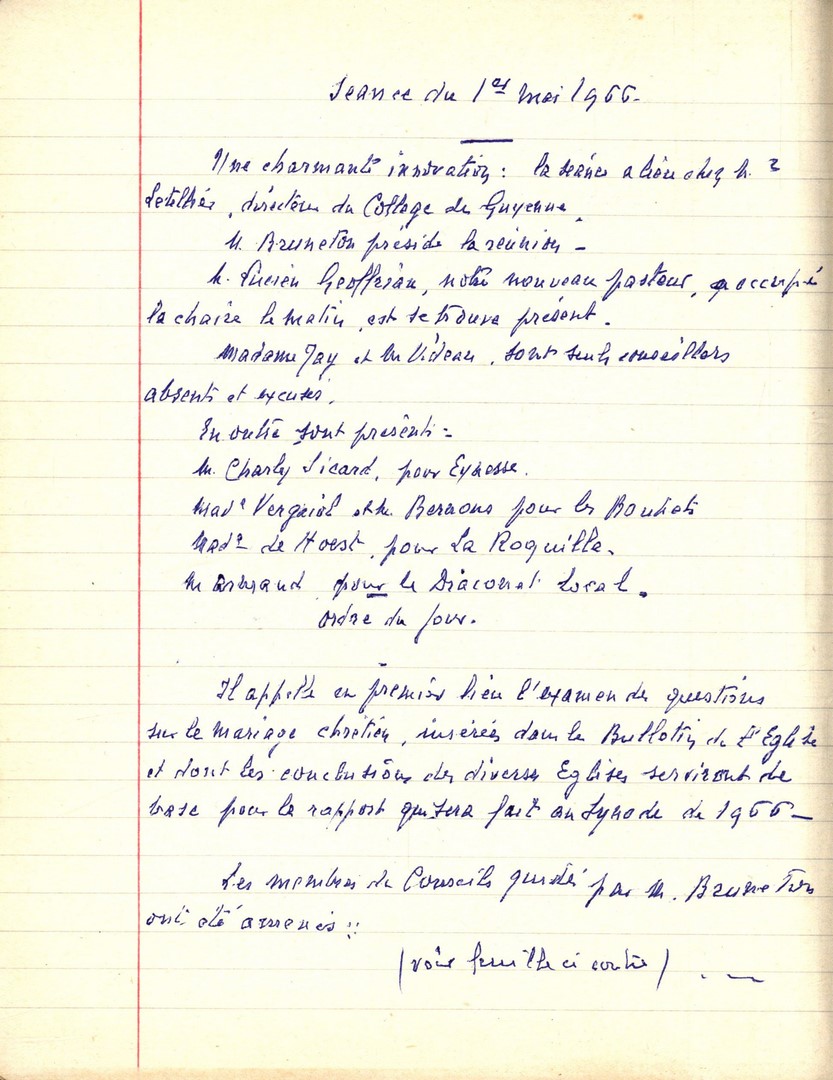 Séance du 1er mai 1966.
Une charmante innovation : la séance a lieu chez M.
Letellier, directeur du Collège de Guyenne.
M. Bruneton préside la réunion -
M. Lucien Geoffrian, notre nouveau pasteur, a occupé
la chaire le matin, est se trouve présent.
Madame Jay et Videau, sont seuls conseillers
absents et excusés.
En outre sont présents :
M. Charly Sicard, pour Eynesse.
Made Vergniol et M. Bernous pour les Bouhets
Made de Hoest, pour La Roquille.
M Armand pour le Diaconat local.
Ordre du jour.
Il appelle en premier lieu l'examen des questions
sur le mariage chrétien, insérées dans le Bulletin de l'Eglise
et dont les conclusions des diverses Eglises serviront de
base pour le rapport qui sera fait au Synode de 1966 -
Les membres du Conseils guidés par M. Bruneton
ont été amenés :
(voir feuille ci contre)